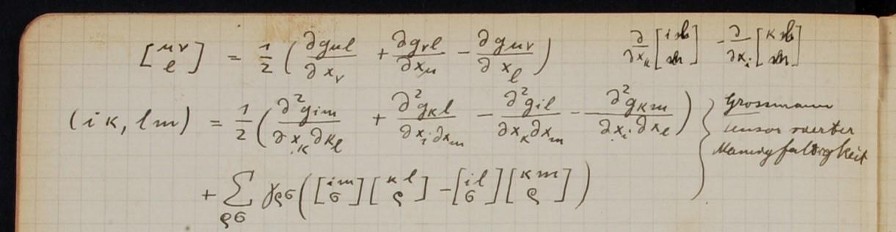 [μν l] = 1/2 (∂gμl/∂xν + ∂gνl/∂xμ − ∂gμν/∂xl) ∂/∂xk [i l m] − ∂/∂xi [κ l m]
(iκ, lm) = 1/2 (∂²gim/∂xκ∂xl + ∂²gκl/∂xi∂xm − ∂²gil/∂xκ∂xm − ∂²gκm/∂xi∂xl) } Grossmann
Tensor vierter
Mannigfaltigkeit
+ ∑ρσ γρσ ([im σ][κl ρ] − [il σ][κm ρ])